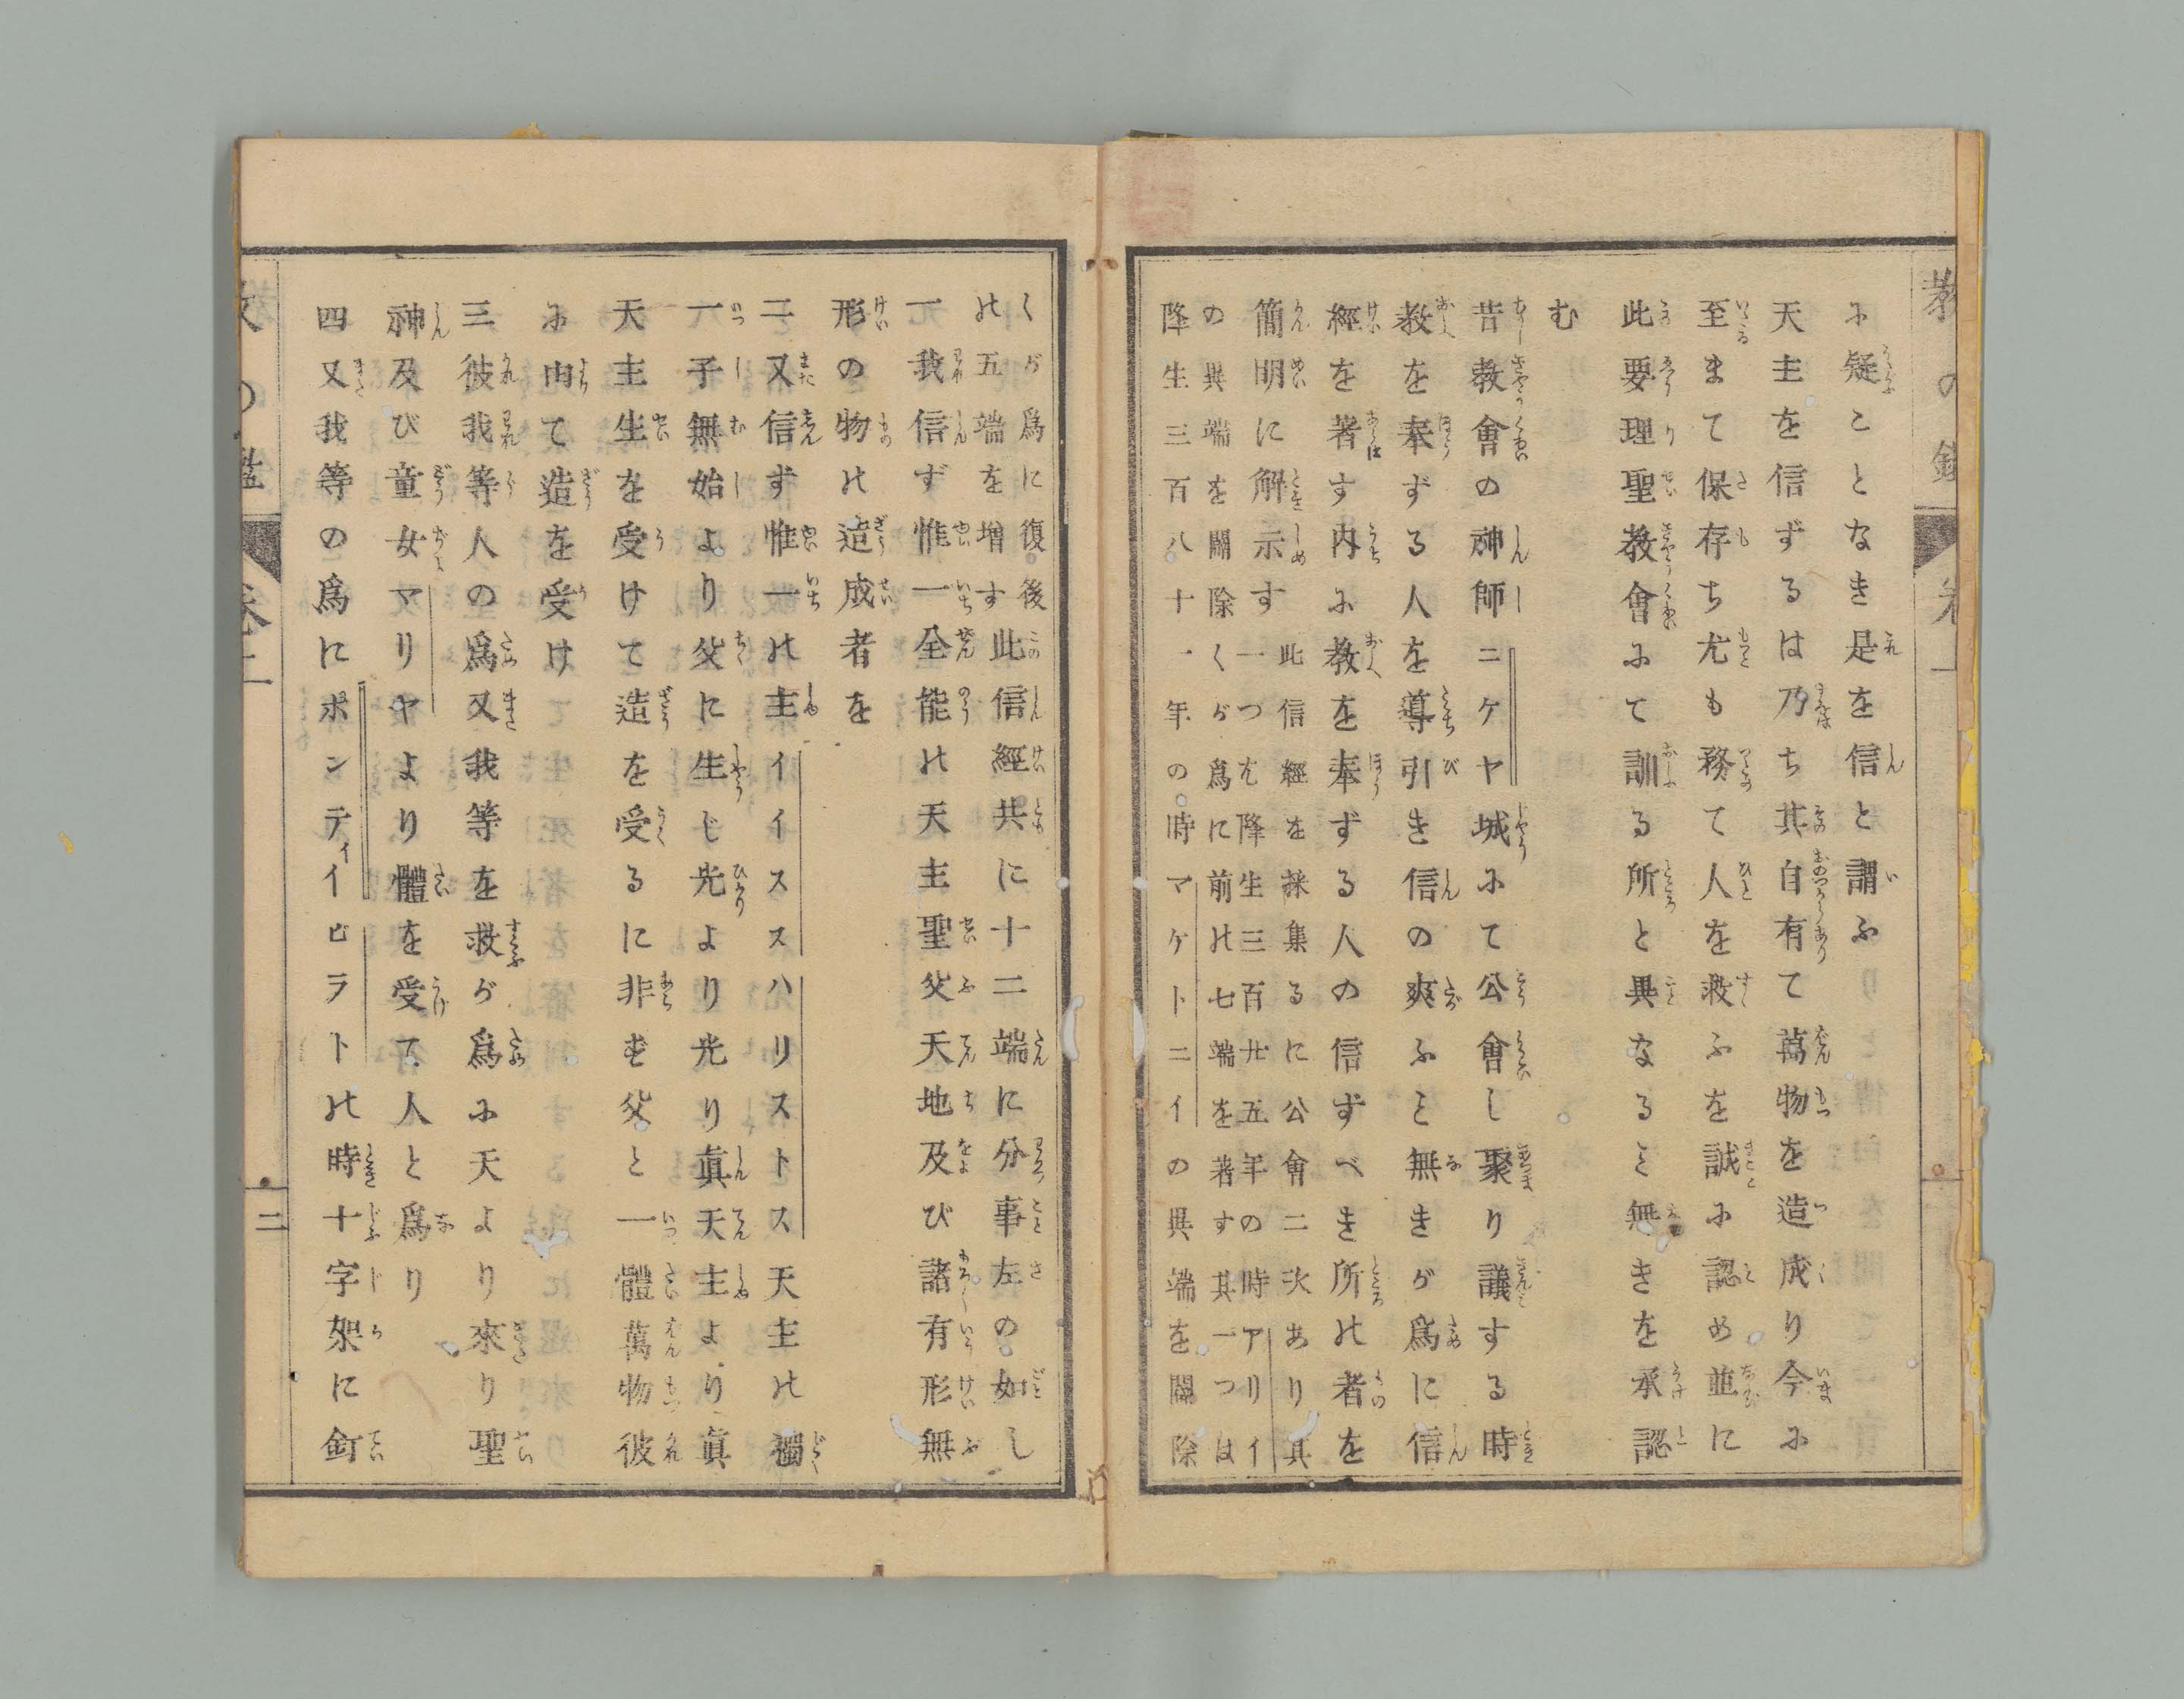 教の鑑 巻一
に疑ことなき是を信と謂ふ
天主を信ずるは乃ち其自有て萬物を造成り今に
至まて保存ち尤も務て人を救ふを誠に認め並に
此要理聖教會にて訓る所と異なるヿ無きを承認
む
昔教會の神師ニケヤ城にて公會し聚り議する時
教を奉ずる人を導引き信の爽ふヿ無きが爲に信
經を著す内に教を奉ずる人の信ずべき所の者を
簡明に解示す此信經を採集るに公會二次あり其
一つハ降生三百廿五年の時アリイ
の異端を闢除くが爲に前の七端を著す其一つは
降生三百八十一年の時マケトニイの異端を闢除
くが爲に復後
の五端を増す此信經共に十二端に分事左の如し
一我信ず惟一全能の天主聖父天地及び諸有形無
形の物の造成者を
二又信ず惟一の主イイススハリストス天主の獨
一子無始より父に生じ光より光り眞天主より眞
天主生を受けて造を受るに非ず父と一體萬物彼
に由て造を受け
三彼我等人の爲又我等を救が爲に天より來り聖
神及び童女マリヤより體を受て人と爲り
四又我等の爲にポンティイピラトの時十字架に釘
教の鑑 巻一 二